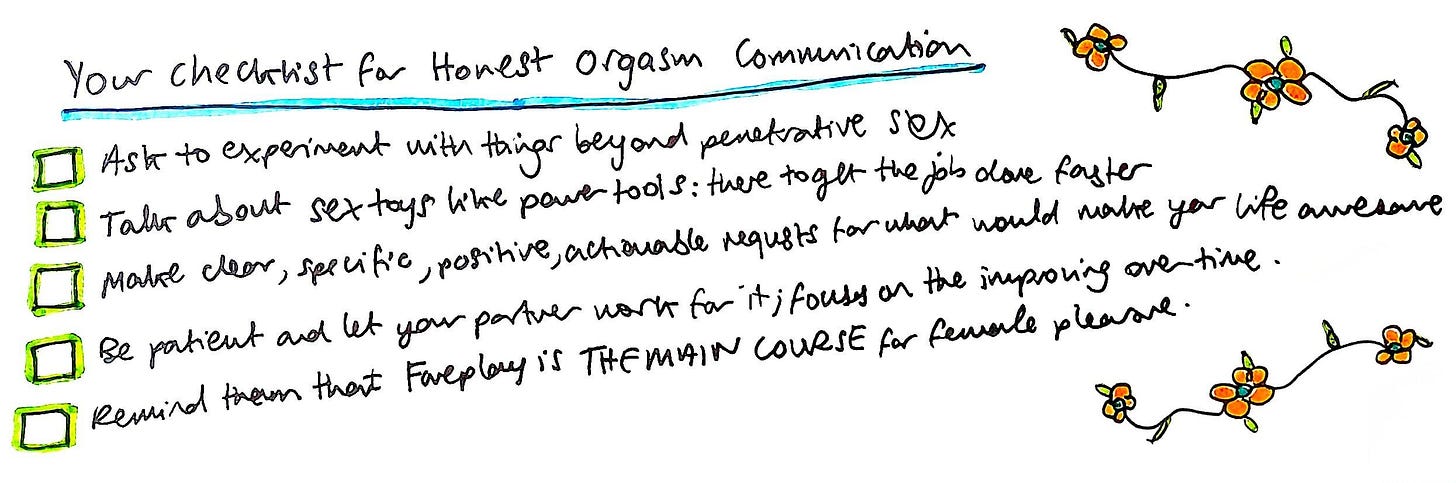 Your Checklist for Honest Orgasm Communication
Ask to experiment with things beyond penetrative sex
Talk about sex toys like power tools: there to get the job done faster
Make clear, specific, positive, actionable requsts for what would make your life awesome
Be patient and let your partner work for it; focus on the improving over time.
Remind them that Foreplay is THE MAIN COURSE for female pleasure.